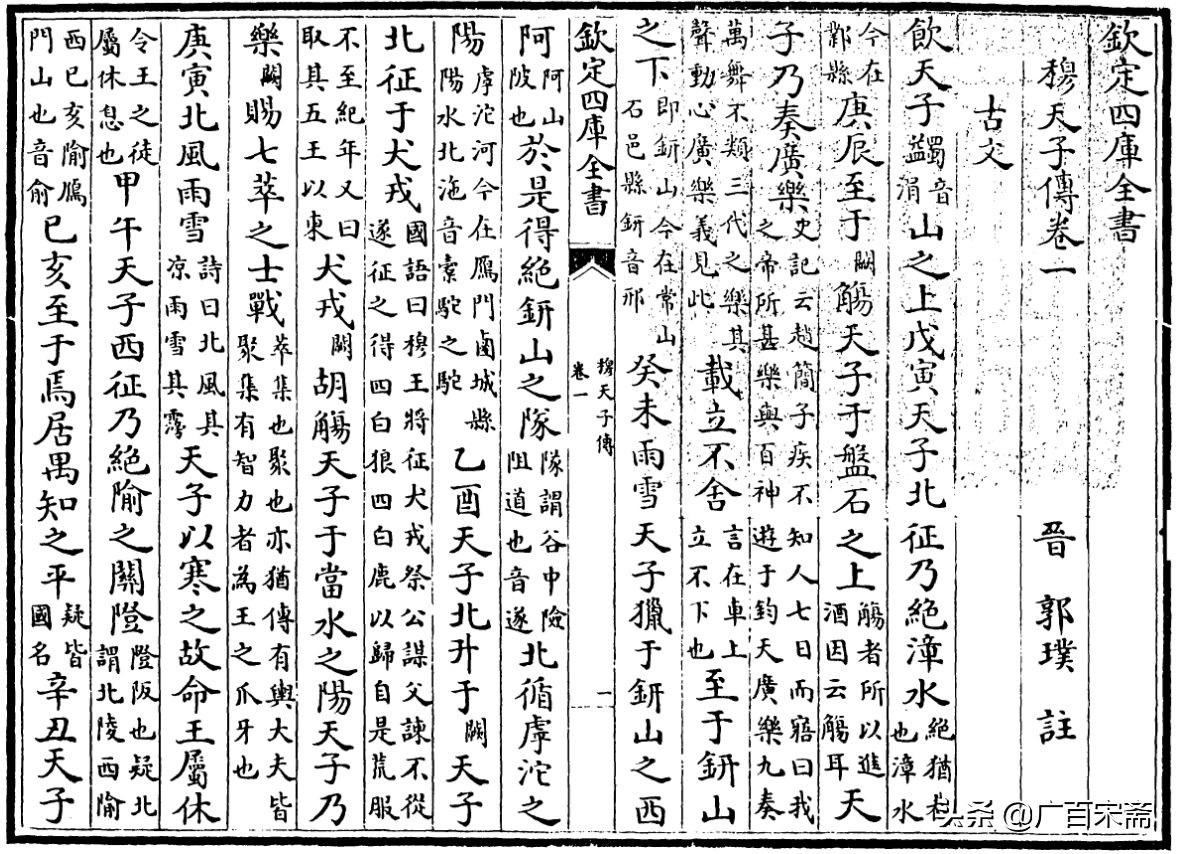 欽定四庫全書
穆天子傳卷一 晉 郭璞 註
古文
飲天子蠲音涓山之上戊寅天子北征乃絕漳水絕猶也漳水
今在鄴縣庚辰至于闕觴天子于盤石之上觴者所以進酒因云觴耳天
子乃奏廣樂史記云趙簡子疾不知人七日而寤曰我之帝所甚樂與百神遊于鈞天廣樂九奏
萬舞不類三代之樂其聲動心廣樂義見此載立不舍言在車上立不下也至于鈃山
之下即鈃山今在常山石邑縣鈃音邢癸未雨雪天子獵于鈃山之西
欽定四庫全書
穆天子傳
卷一
一
阿阿山陂也於是得絕鈃山之隊隊謂谷中險阻道也音遂北循虖沱之
陽虖沱河今在鴈門鹵城縣陽水北沲音橐駝之駝乙酉天子北升于闕天子
北征于犬戎國語曰穆王將征犬戎祭公謀父諫不從遂征之得四白狼四白鹿以歸自是荒服
不至紀年又曰取其五王以東犬戎闕胡觴天子于當水之陽天子乃
樂闕賜七萃之士戰萃集也聚也亦猶傳有輿大夫皆聚集有智力者為王之爪牙也
庚寅北風雨雪詩曰北風其凉雨雪其雱天子以寒之故命王屬休
令王之徒屬休息也甲午天子西征乃絕隃之關隥隥阪也疑北謂北陵西隃
西已亥隃鴈門山也音俞已亥至于焉居禺知之平疑皆國名辛丑天子
头条 @广百宋斋